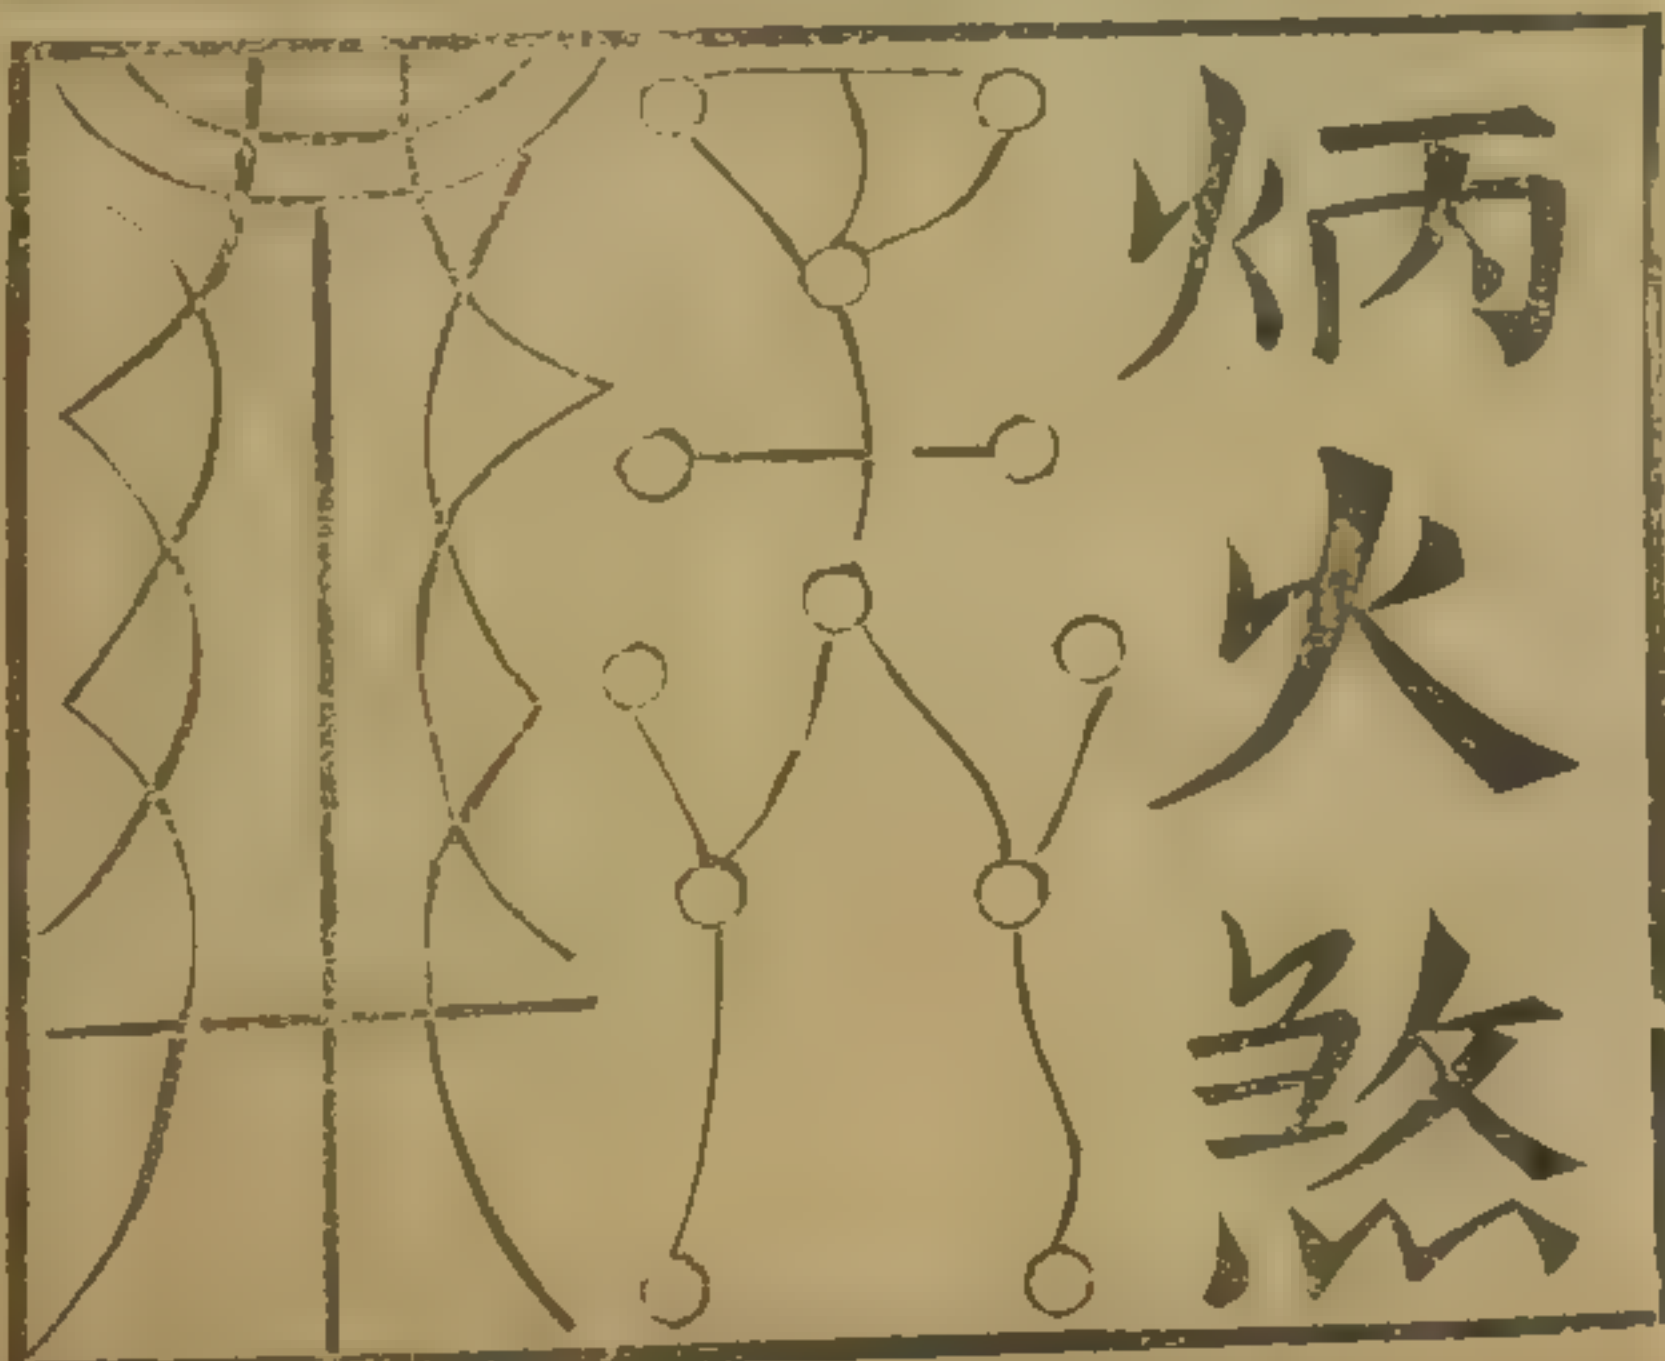 炳火煞